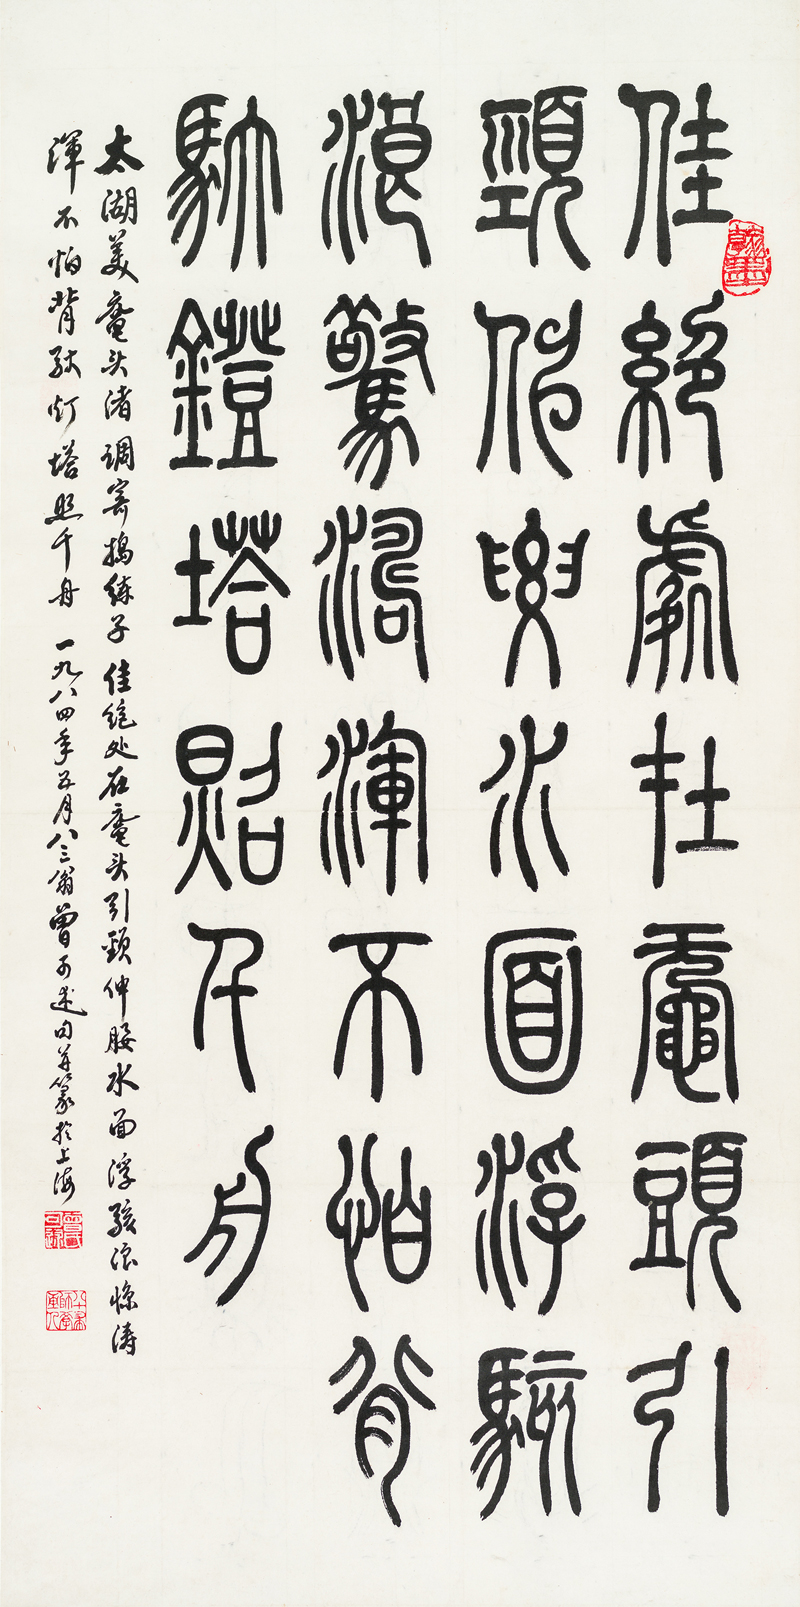 佳絕處在黿頭引
頸伸要水面浮駭
浪驚濤渾不怕背
馱鐙塔照千舟
太湖美黿头渚调寄搗练子佳绝处在黿头引颈伸腰水面浮骇浪惊涛
渾不怕背馱灯塔照千舟一九八四年五月八三翁曾可述句并篆於上海